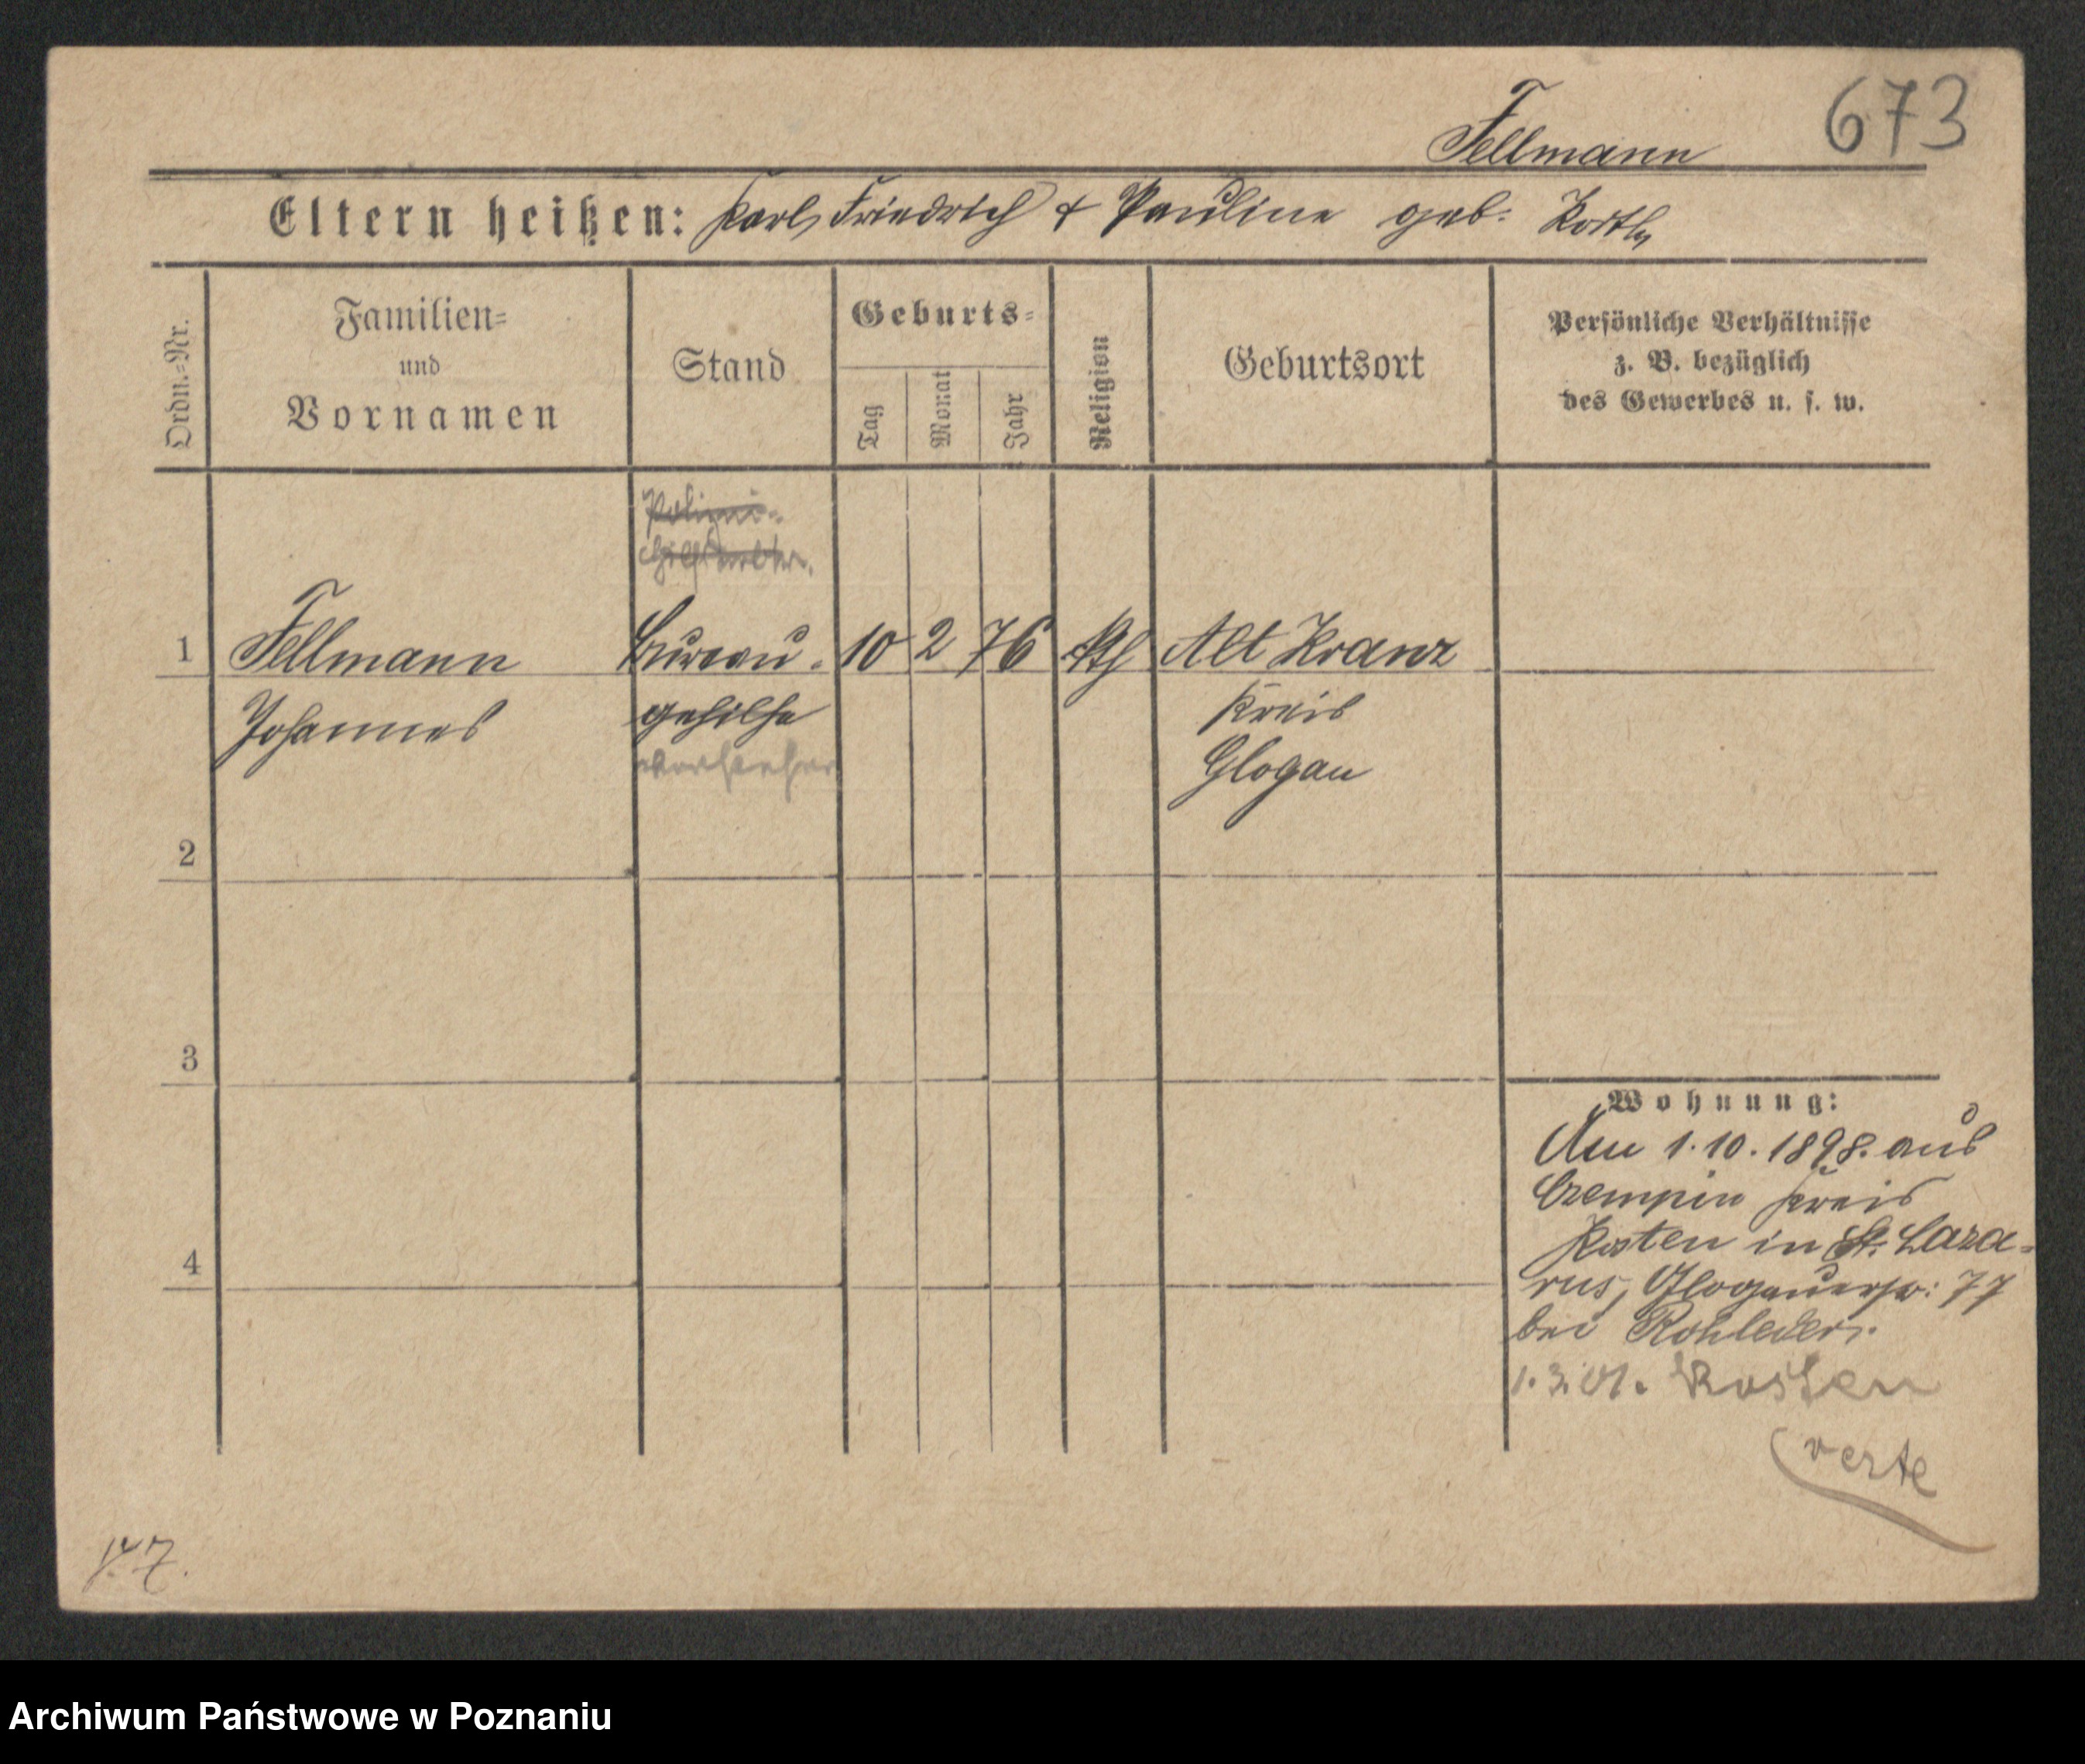 673
Fellmann
Eltern heißen: Karl Friedrich & Pauline geb.
Ordn.-Nr.
Familien-
und
Vornamen
Stand
Geburts-
Tag
Monat
Jahr
Religion
Geburtsort
Persönliche Verhältnisse
z. B. bezüglich
des Gewerbes u. s. w.
1
Fellmann
Johannes
Polizei-
Bureau-
gehilfe
vorsteher
10
2
76
Kth
Alt Kranz
Kreis
Glogau
2
3
4
Wohnung:
Am 1.10.1898. aus
Czempin Kreis
Kosten in St. Laza-
rus, Glogauerstr: 77
bei Rohleder.
1.3.01. Kosten
verte
Archiwum Państwowe w Poznaniu